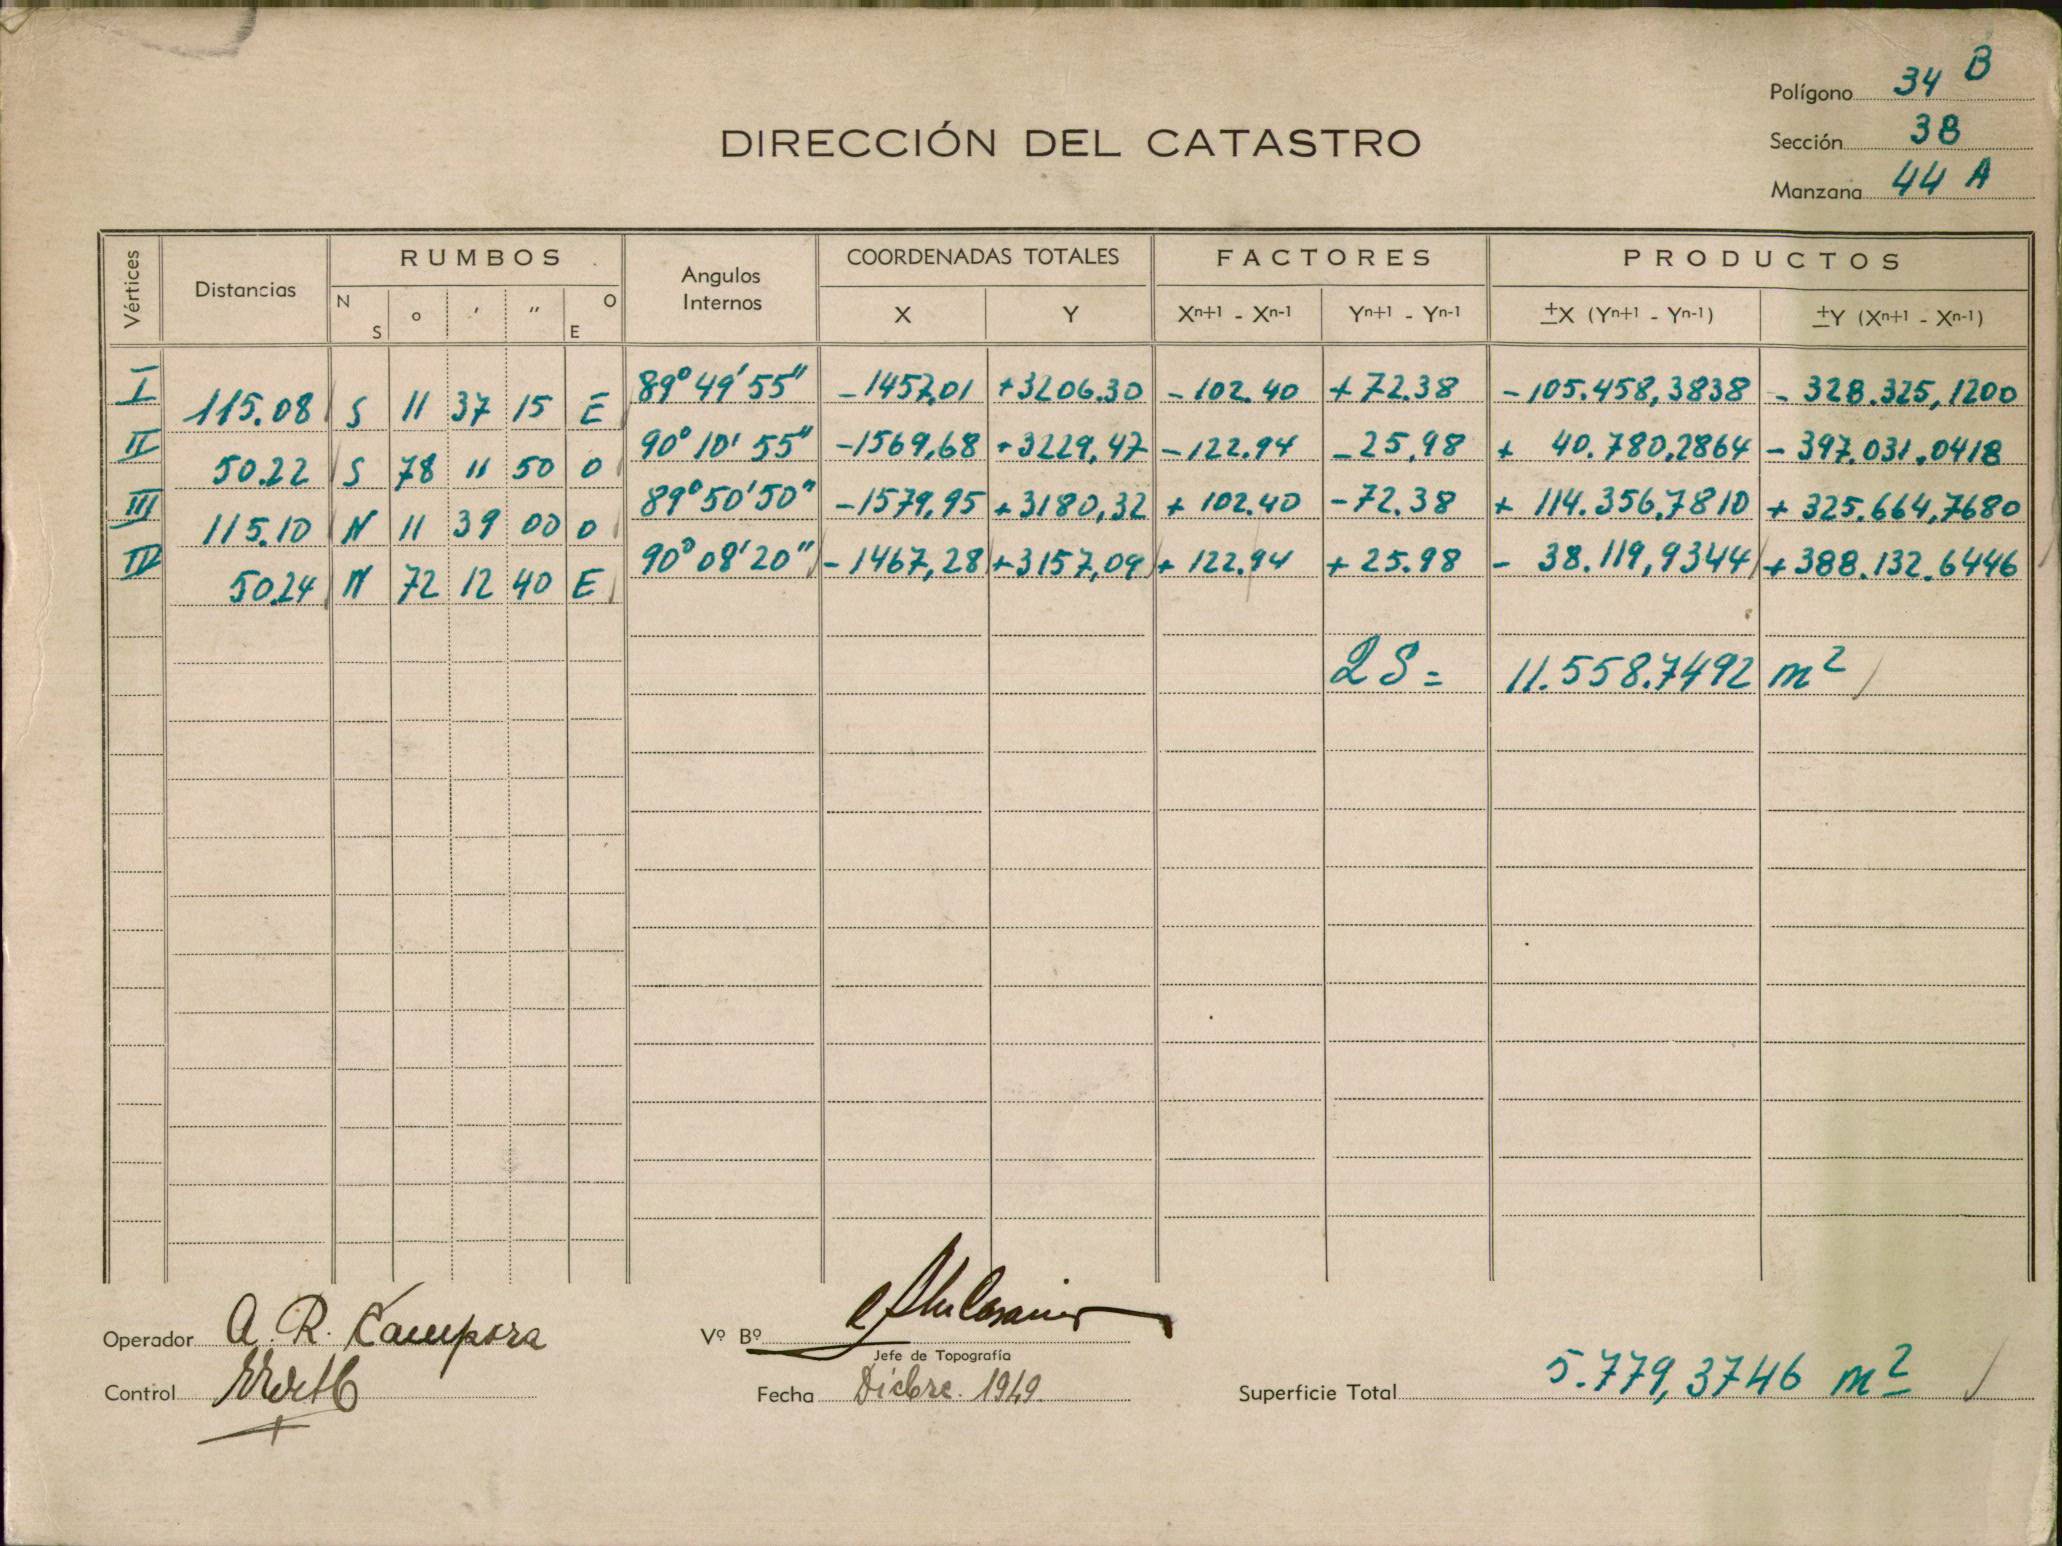 Polígono 34 B
DIRECCIÓN DEL CATASTRO
Sección 38
Manzana 44 A
Vértices Distancias RUMBOS Angulos Internos COORDENADAS TOTALES FACTORES PRODUCTOS
N S o ' " O E X Y Xn+1 - Xn-1 Yn+1 - Yn-1 ±X (Yn+1 - Yn-1) ±Y (Xn+1 - Xn-1)
I 89° 49' 55" -1457,01 +3206.30 -102.40 +72.38 -105.458,3838 - 328.325,1200
115.08 S 11 37 15 E
II 90° 10' 55" -1569,68 +3229,47 -122.94 -25,98 + 40.780,2864 - 397.031.0418
50.22 S 78 11 50 O
III 89° 50' 50" -1579,95 +3180,32 + 102.40 -72.38 + 114.356,7810 + 325.664,7680
115.10 N 11 39 00 O
IV 90° 08' 20" -1467,28 +3157,09 + 122.94 + 25.98 - 38.119,9344 + 388.132.6446
50.24 N 72 12 40 E
2S = 11.558.7492 m²
Operador A. R. Campora
Vº Bº
Jefe de Topografía
Control
Fecha Dicbre. 1949
Superficie Total 5.779,3746 m²